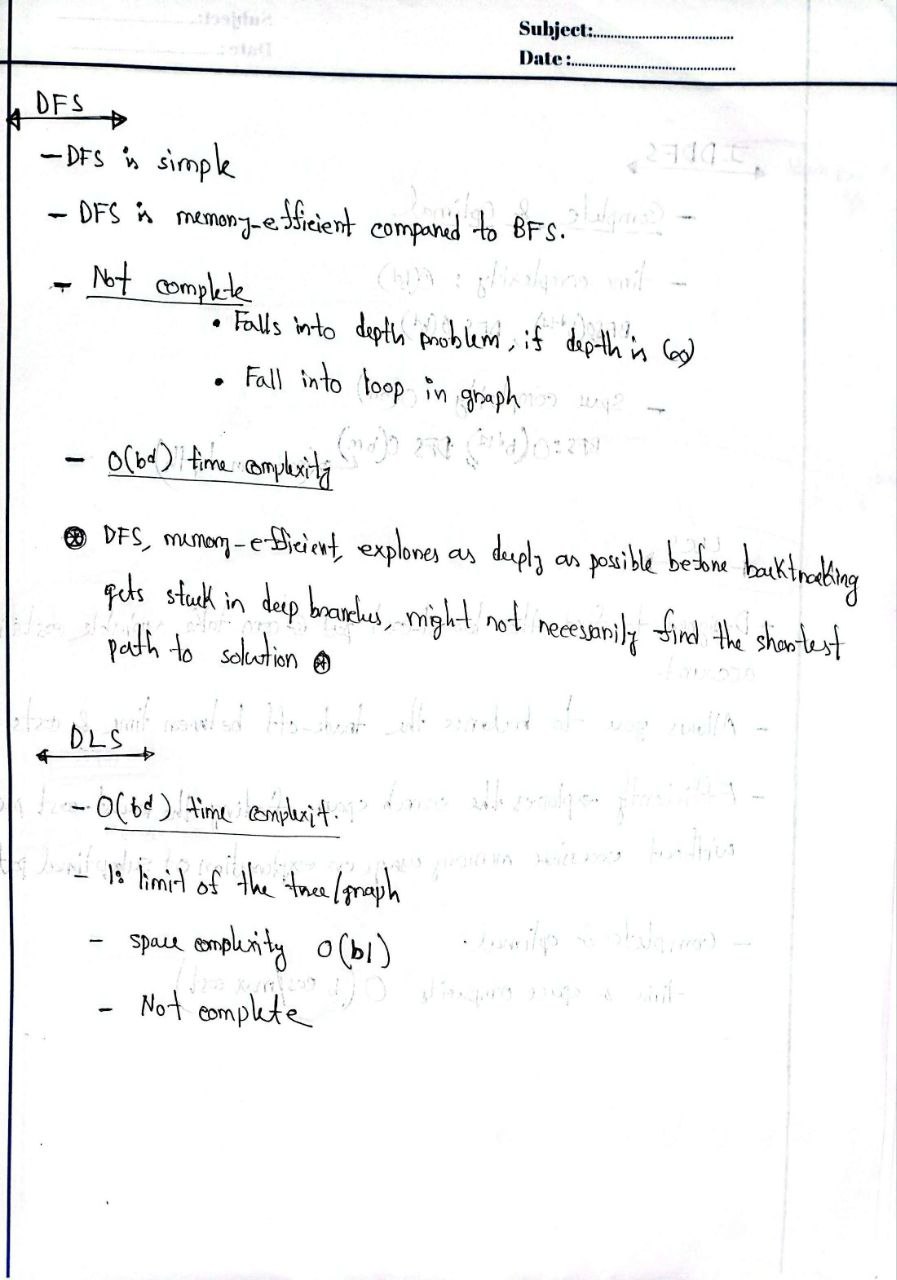 Subject:
Date:
DFS
- DFS is simple
- DFS is memory-efficient compared to BFS.
- Not complete
• Falls into depth problem, if depth is (∞)
• Fall into loop in graph
- O(b^d) time complexity
⊛ DFS, memory-efficient, explores as deeply as possible before backtracking
gets stuck in deep branches, might not necessarily find the shortest
path to solution ⊛
DLS
- O(b^d) time complexit.
- l: limit of the tree/graph
- space complexity O(bl)
- Not complete